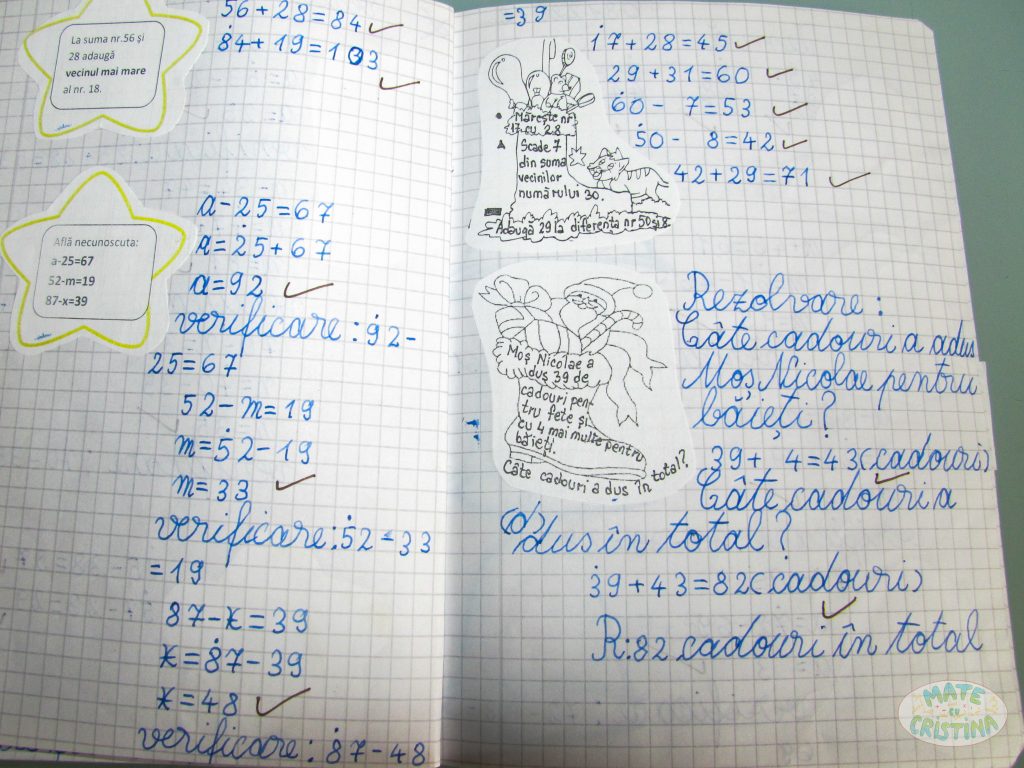 La suma nr.56 și
28 adaugă
vecinul mai mare
al nr. 18.
56+28=84
84+19=103
Află necunoscuta:
a-25=67
52-m=19
87-x=39
a-25=67
a=25+67
a=92
verificare: 92-
25=67
52-m=19
m=52-19
m=33
verificare: 52-33
=19
87-x=39
x=87-39
x=48
verificare: 87-48
=39
Mărește nr
17 cu 28
Scade 7
din suma
vecinilor
numărului 30.
Adaugă 29 la diferența nr 50 și 8.
17+28=45
29+31=60
60- 7=53
50- 8=42
42+29=71
Moș Nicolae a
dus 39 de
cadouri pen-
tru fete și
cu 4 mai multe pentru
băieți.
Câte cadouri a dus în total?
Rezolvare:
Câte cadouri a adus
Moș Nicolae pentru
băieți?
39+ 4=43(cadouri)
Câte cadouri a
(d)dus în total?
39+43=82(cadouri)
R:82 cadouri în total
MATE
cu
CRISTINA